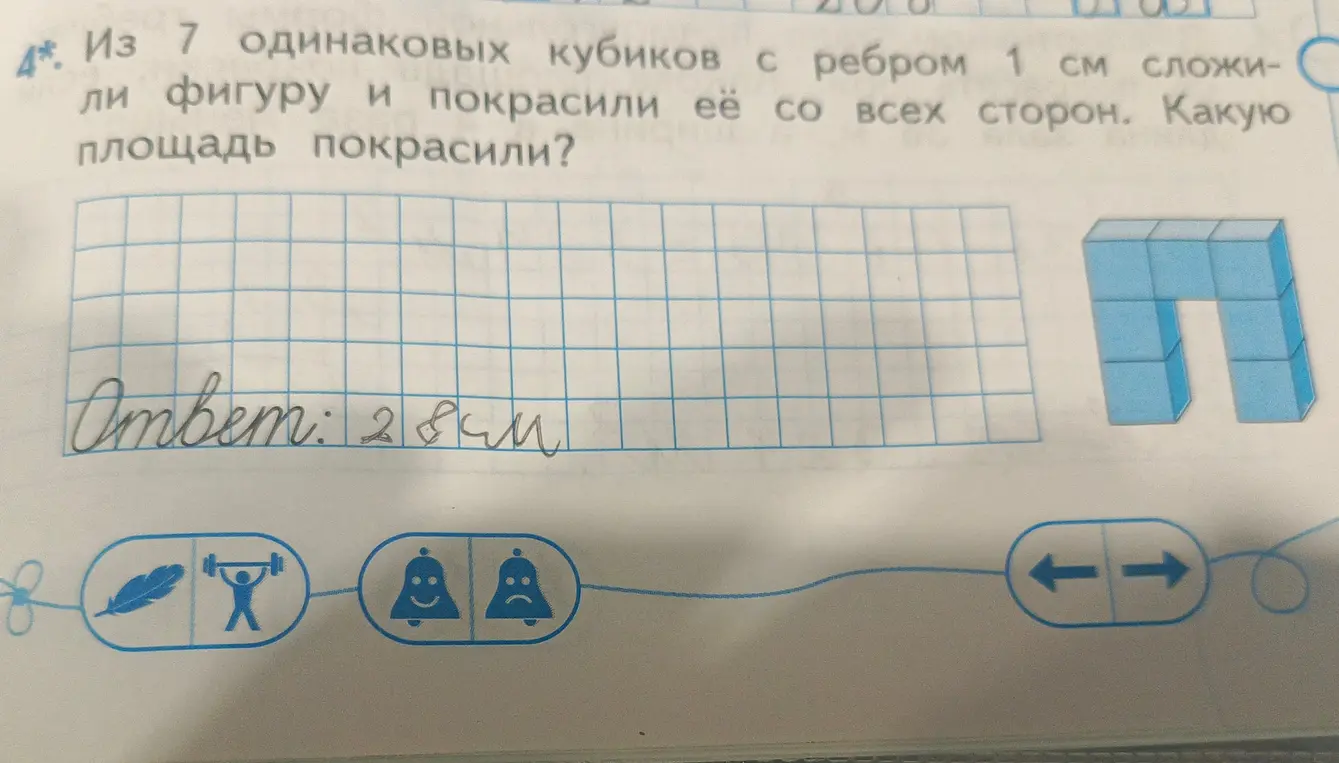 4*. Из 7 одинаковых кубиков с ребром 1 см сложи-
ли фигуру и покрасили её со всех сторон. Какую
площадь покрасили?
Ответ: 28 см